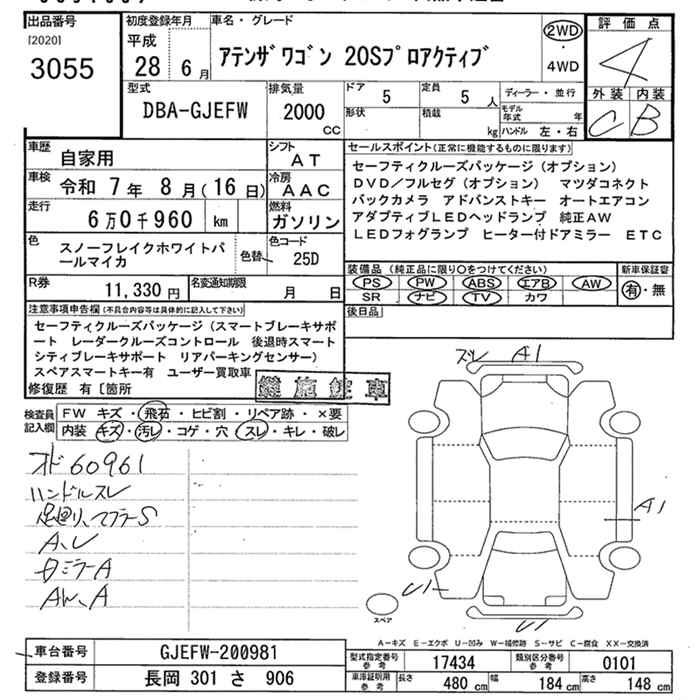 出品番号
[2020]
3055
初度登録年月
平成
28年 6月
車名・グレード
アテンザワゴン 20Sプロアクティブ
2WD
・
4WD
評価点
4
外装 内装
C B
型式
DBA-GJEFW
排気量
2000
CC
ドア 5
定員 5人
形状
積載 kg
ディーラー・並行
モデル年式 年
ハンドル 左・右
車歴 自家用
シフト AT
車検 令和 7年 8月(16日)
冷房 AAC
走行 6万0千960 km
燃料 ガソリン
色 スノーフレイクホワイトパ
ールマイカ
色替
色コード
25D
R券 11,330円
名変通知期限 月 日
セールスポイント(正常に機能するものに限ります)
セーフティクルーズパッケージ(オプション)
DVD/フルセグ(オプション) マツダコネクト
バックカメラ アドバンストキー オートエアコン
アダプティブLEDヘッドランプ 純正AW
LEDフォグランプ ヒーター付ドアミラー ETC
装備品(純正品に限り○をつけてください)
PS PW ABS エアB AW
SR ナビ TV カワ
新車保証書
有・無
後日品
注意事項申告欄(不具合内容等は具体的に記入して下さい)
セーフティクルーズパッケージ(スマートブレーキサポ
ート レーダークルーズコントロール 後退時スマート
シティブレーキサポート リアパーキングセンサー)
スペアスマートキー有 ユーザー買取車
修復歴 有[箇所
検査員記入欄
FW キズ・飛石・ヒビ割・リペア跡・×要
内装 キズ・汚レ・コゲ・穴・スレ・キレ・破レ
オド60961
ハンドルスレ
足廻り、マフラーS
A、U
ミラーA
AW、A
スレ A1
A1
U1
U1
スペア
A-キズ E-エクボ U-凹み W-補修跡 S-サビ C-腐食 XX-交換済
車台番号 GJEFW-200981
登録番号 長岡 301 さ 906
型式指定番号参考 17434
類別区分番号参考 0101
車庫証明用参考 長さ 480cm 幅 184cm 高さ 148cm